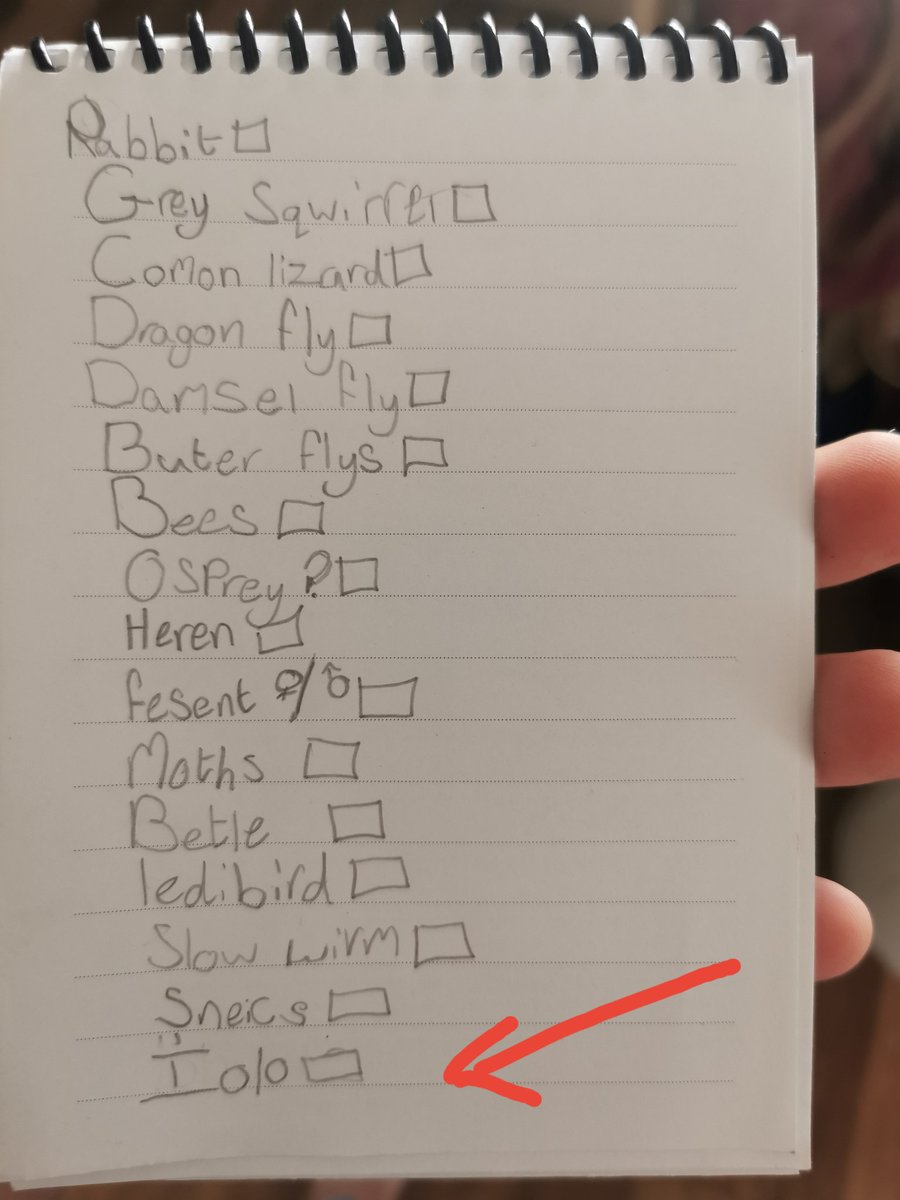 Rabbit
Grey Sqwirrel
Comon lizard
Dragon fly
Damsel fly
Buter flys
Bees
OSPrey ?
Heren
fesent ♀/♂
Moths
Betle
ledibird
Slow wirm
Sneics
Iolo